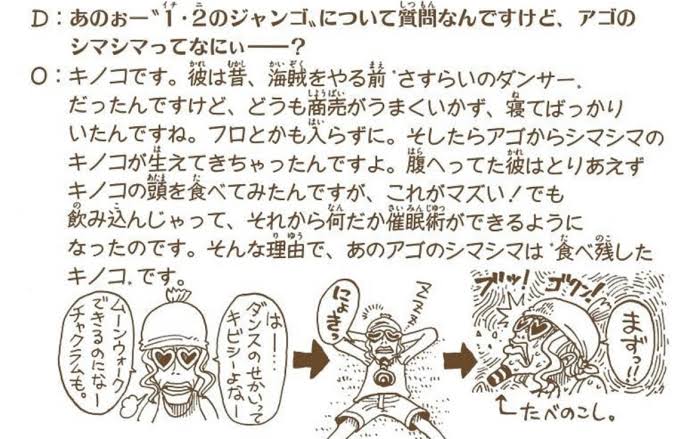 D：あのぉー〝1・2のジャンゴ〟について質問なんですけど、アゴの
シマシマってなにぃ――？
O：キノコです。彼は昔、海賊をやる前〝さすらいのダンサー〟
だったんですけど、どうも商売がうまくいかず、寝てばっかり
いたんですね。フロとかも入らずに。そしたらアゴからシマシマの
キノコが生えてきちゃったんですよ。腹へってた彼はとりあえず
キノコの頭を食べてみたんですが、これがマズい！でも
飲み込んじゃって、それから何だか催眠術ができるように
なったのです。そんな理由で、あのアゴのシマシマは〝食べ残した
キノコ〟です。
はー…
ダンスのせかいって
キビシーよなー
ムーンウォーク
できるのになー
チャクラムも。
にょきっ
ZZZ
ブッ！ゴクン！
まずっ!!
たべのこし。